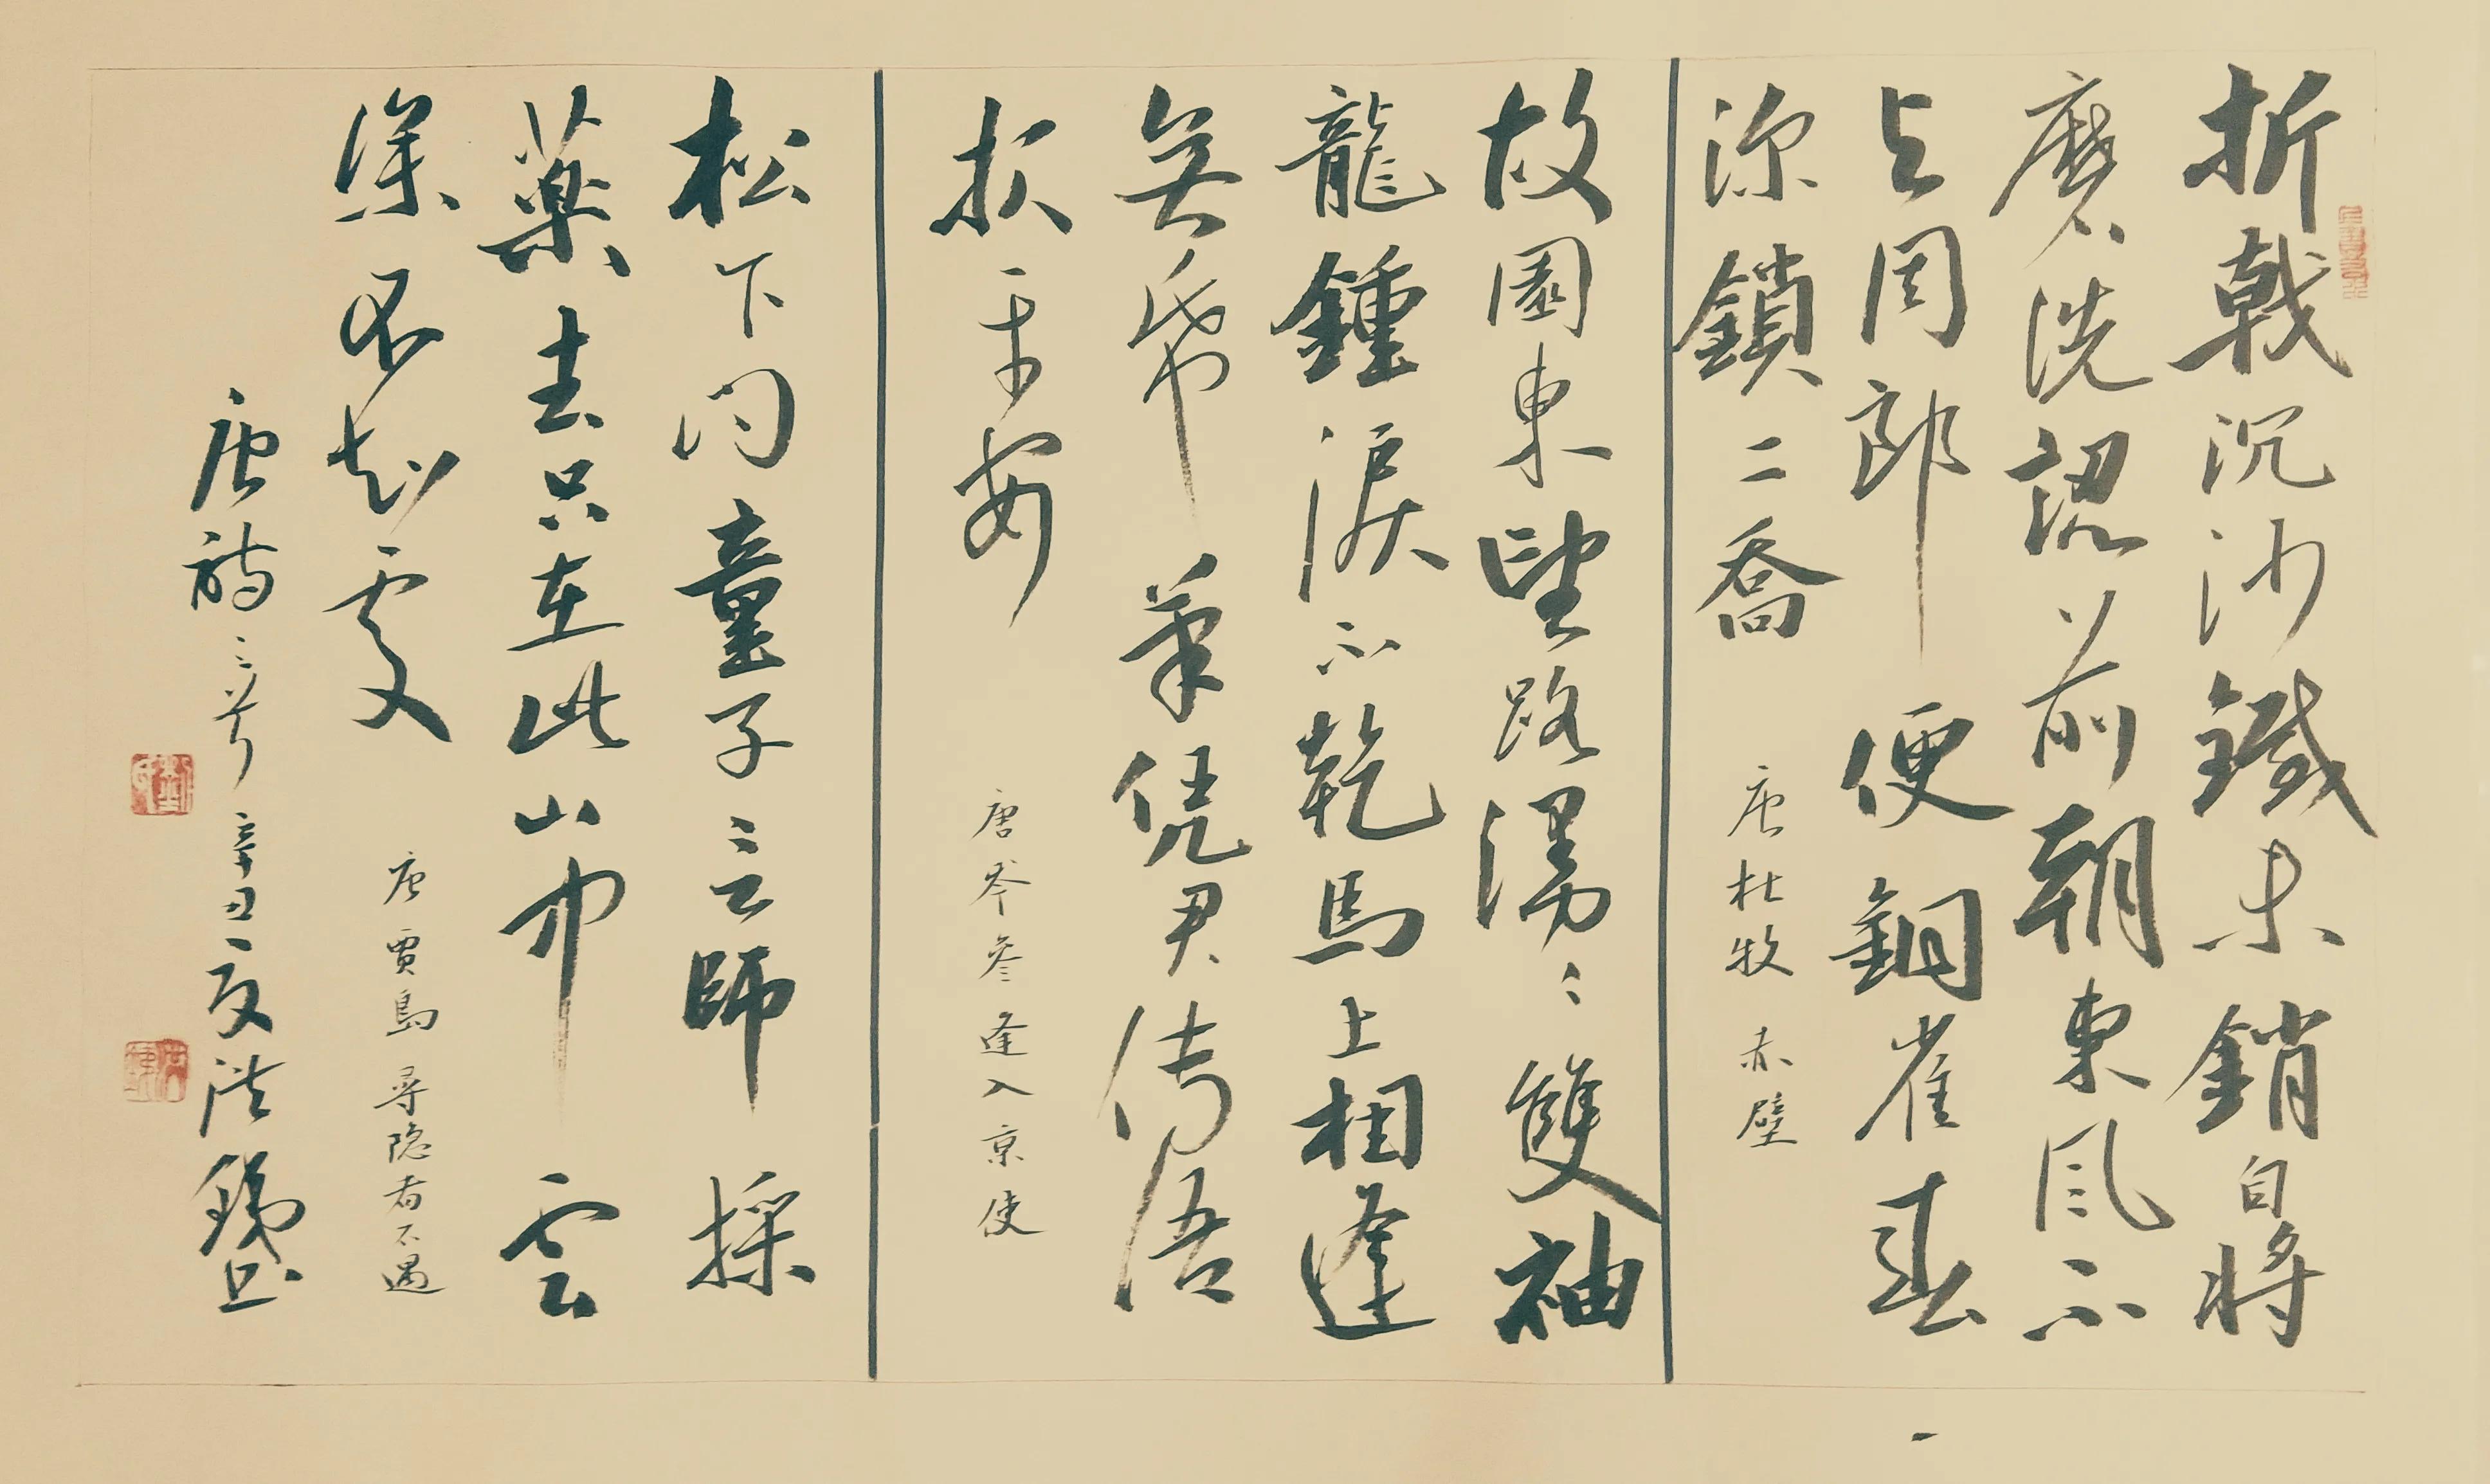 折戟沉沙鐵未銷自将
磨洗認前朝東風不
与周郎便銅雀春
深鎖二喬
唐杜牧 赤壁
故園東望路漫〻雙袖
龍鍾淚不乾馬上相逢
無帋筆凭君传语
报平安
唐岑參逢入京使
松下问童子言師採
藥去只在此山中雲
深不知處
唐賈島 尋隐者不遇
唐詩三首 辛丑夏洪